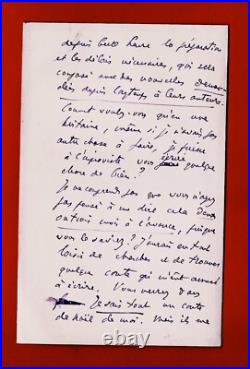 depuis huit jours la préparation
et les délais nécessaires, qui sera
composé avec des nouvelles demandées
depuis longtemps à leurs auteurs.
Comment voulez-vous qu'en une
huitaine, même si je n'avais pas
autre chose à faire, je puisse
à l'improviste vous écrire quelque
chose de bien ?
Je ne comprends pas que vous n'ayez
pas pensé à me dire cela deux
ou trois mois à l'avance, puisque
vous le saviez ? J'aurais eu tout
loisir de chercher et de trouver
quelque conte qui m'eût amusé
à écrire. Vous verrez dans
Je sais tout un conte
de Noël de moi. Mais il me